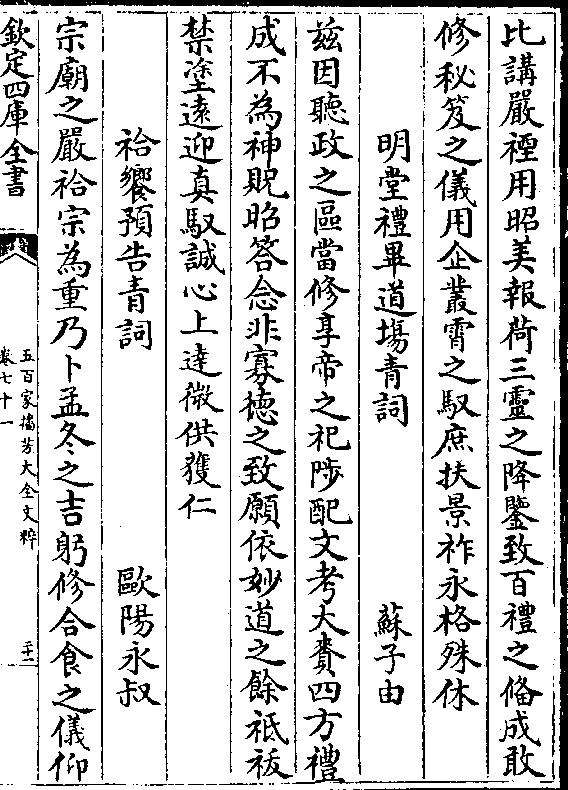 比講嚴禋用昭美報荷三靈之降鑒致百禮之備成敢
修秘笈之儀用企叢霄之馭庶扶景祚永格殊休
明堂禮畢道場青詞 蘇子由
兹因聽政之區當修享帝之祀陟配文考大賚四方禮
成不為神貺昭答念非寡德之致願依妙道之餘祗祓
禁塗遠迎真馭誠心上達微供獲仁
祫饗預告青詞 歐陽永叔
宗廟之嚴祫宗為重乃卜孟冬之吉躬修合食之儀仰
欽定四庫全書
五百家播芳大全文粹
卷七十一
二十二